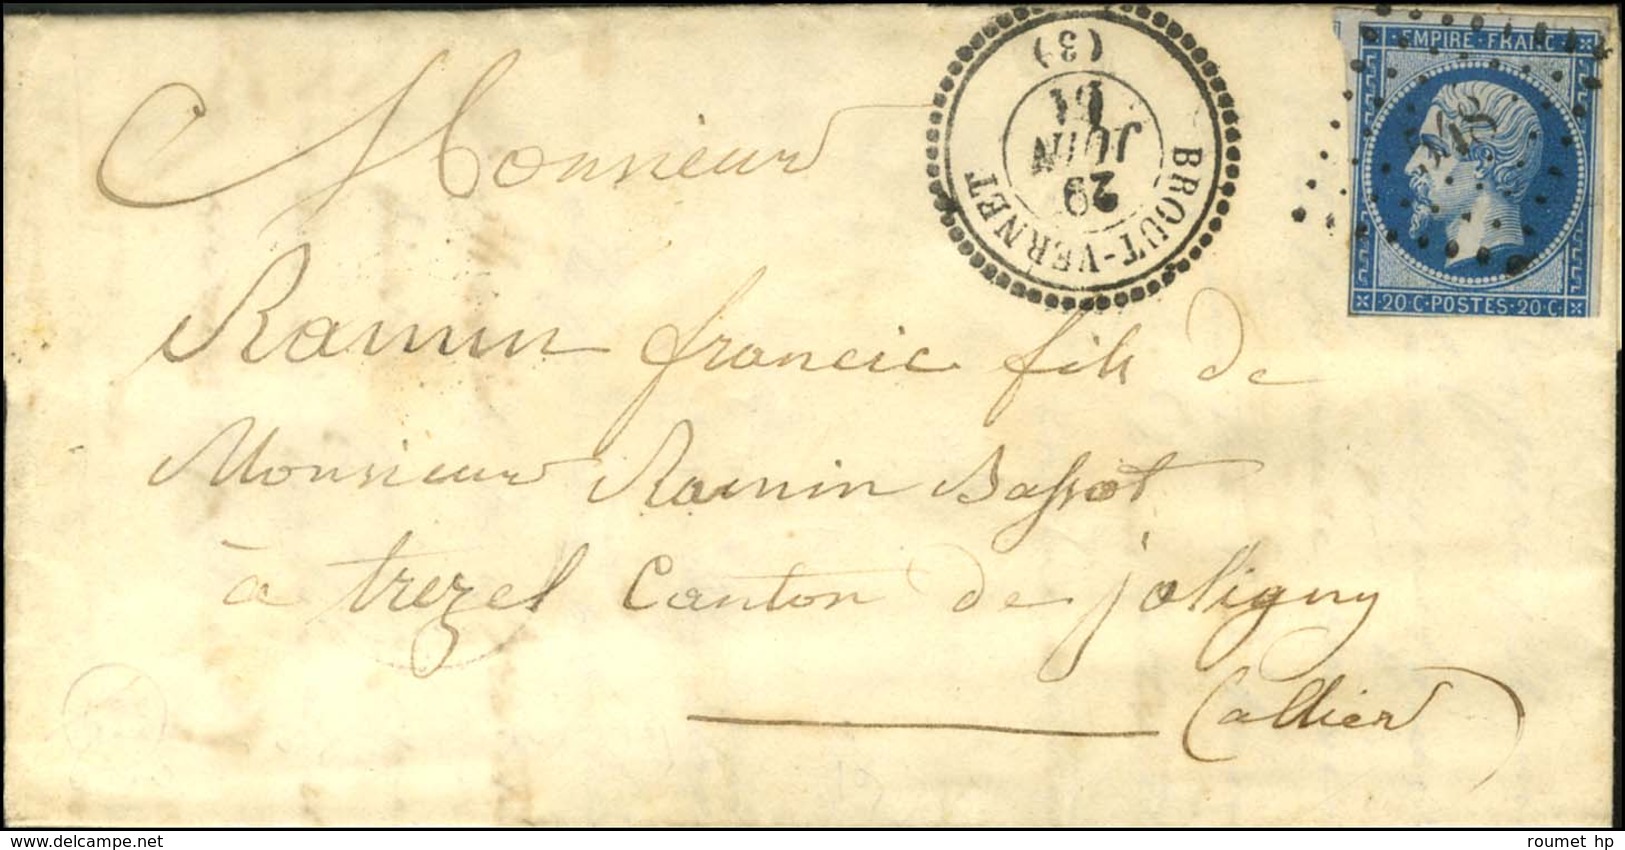 BROUT-VERNET
(3)
29
JUIN
61
EMPIRE FRANC
20 C · POSTES · 20 C
Monsieur
Ramin francic fils de
Monsieur Ramin Bassot
à trezel Canton de jaligny
allier
roumet hp